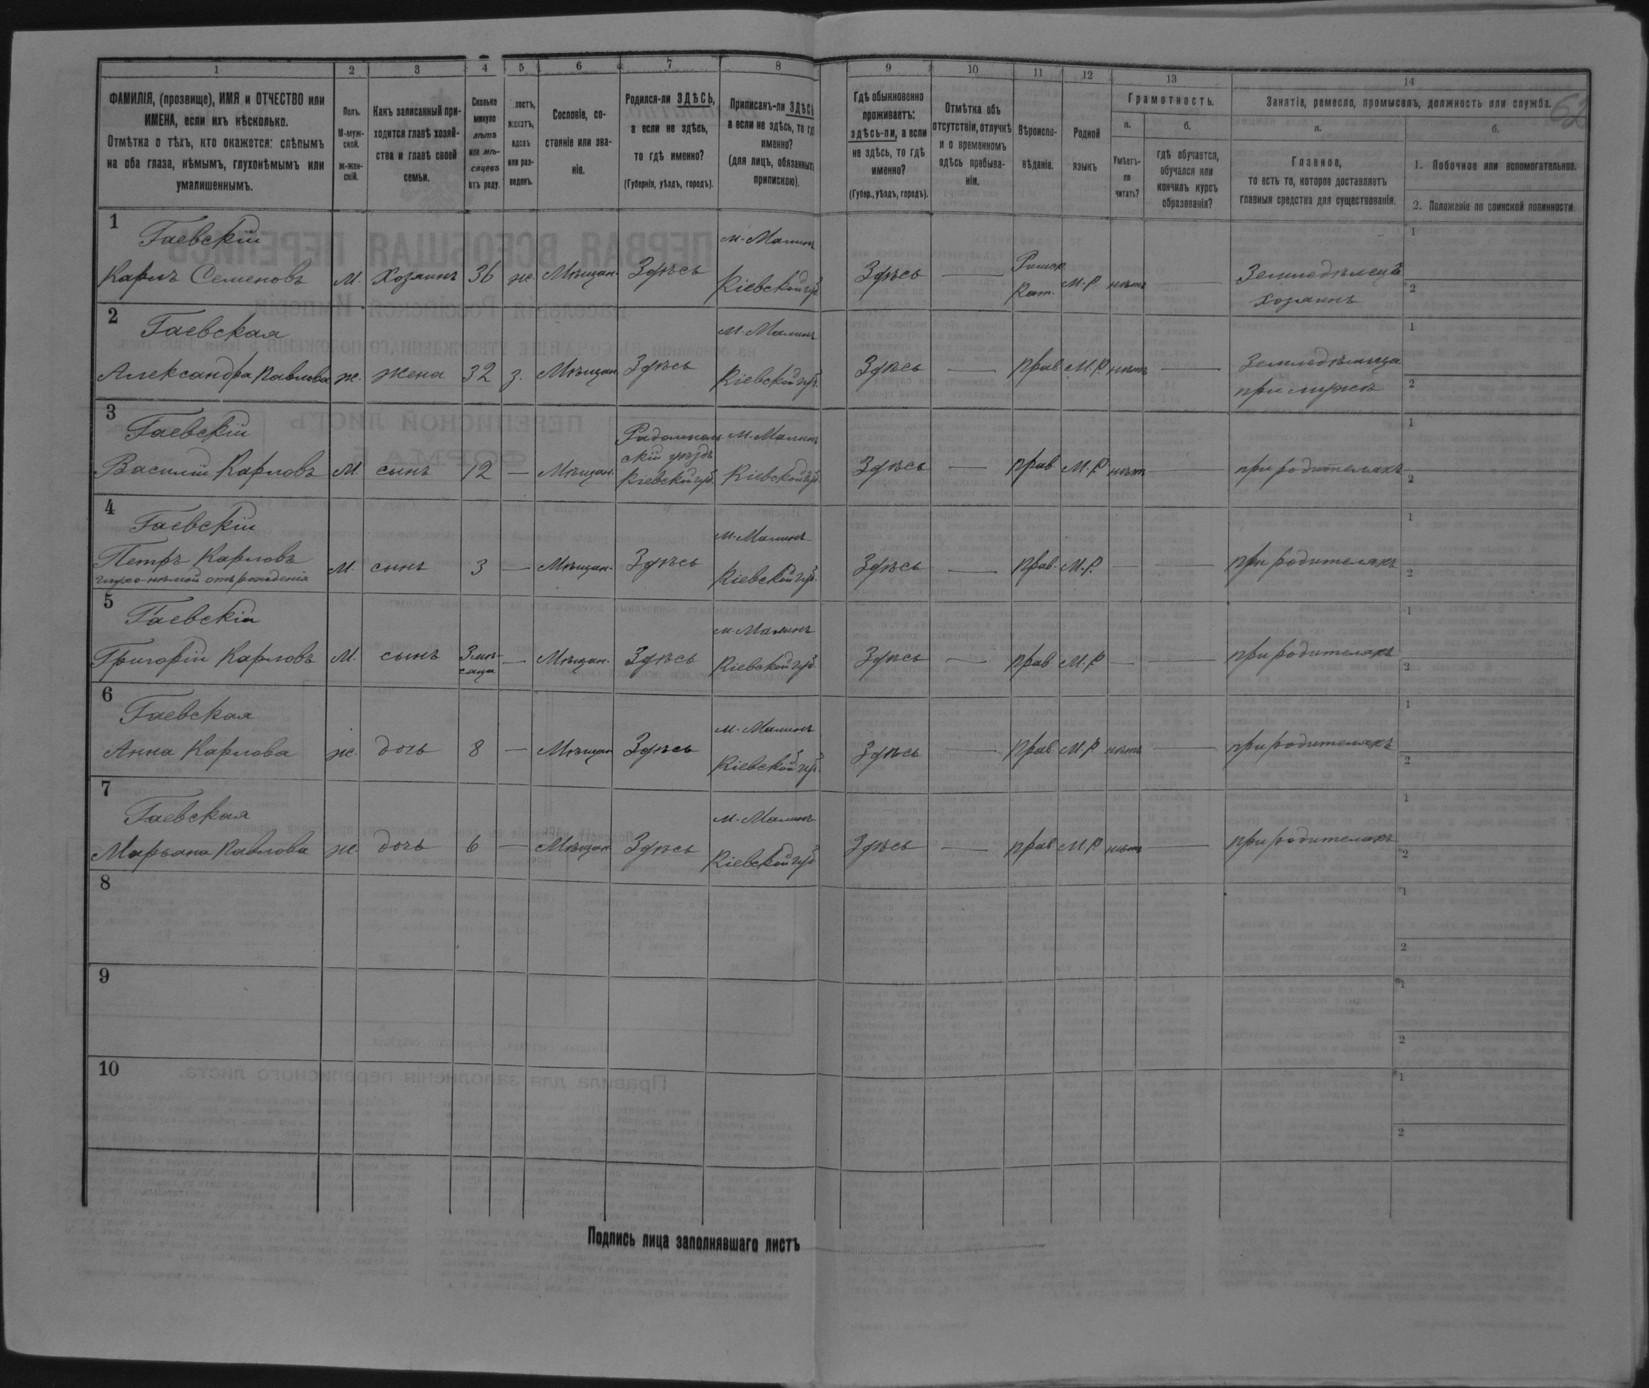 1 2 3 4 5 6 7 8 9 10 11 12 13 14
ФАМИЛІЯ, (прозвище), ИМЯ и ОТЧЕСТВО или
ИМЕНА, если ихъ нѣсколько.
Отмѣтка о тѣхъ, кто окажется: слѣпымъ
на оба глаза, нѣмымъ, глухонѣмымъ или
умалишеннымъ.
Полъ.
М-муж-
ской.
Ж-жен-
скій.
Какъ записанный при-
ходится главѣ хозяй-
ства и главѣ своей
семьи.
Сколько
минуло
лѣтъ
или мѣ-
сяцевъ
отъ роду.
лостъ,
женатъ,
вдовъ
или раз-
веденъ.
Сословіе, со-
стояніе или зва-
ніе.
Родился-ли ЗДѢСЬ,
а если не здѣсь,
то гдѣ именно?
(Губернія, уѣздъ, городъ).
Приписанъ-ли ЗДѢСЬ
а если не здѣсь, то гд
именно?
(для лицъ, обязанных
припискою).
Гдѣ обыкновенно
проживаетъ:
здѣсь-ли, а если
не здѣсь, то гдѣ
именно?
(Губер., уѣздъ, городъ).
Отмѣтка объ
отсутствіи, отлучкѣ
и о временномъ
здѣсь пребыва-
ніи.
Вѣроиспо-
вѣданіе.
Родной
языкъ
Грамотность.
а.
Умѣетъ-
ли
читать?
б.
гдѣ обучается,
обучался или
кончилъ курсъ
образованія?
Занятіе, ремесло, промыселъ, должность или служба.
62
а.
Главное,
то есть то, которое доставляетъ
главныя средства для существованія.
б.
1. Побочное или вспомогательное.
2. Положеніе по воинской повинности
1
Гаевскій
Карлъ Семеновъ М. Хозяинъ 36 ж Мѣщан. Здѣсь м. Малинъ Кіевской губ. Здѣсь — Римск. Кат. М.Р. нѣтъ — Земледѣлецъ хозяинъ
1
2
2
Гаевская
Александра Павлова ж. жена 32 з. Мѣщан. Здѣсь м. Малинъ Кіевской губ. Здѣсь — прав. М.Р. нѣтъ — Земледѣлица при мужѣ
1
2
3
Гаевскій
Василій Карловъ М. сынъ 12 — Мѣщан. Радомысль скій уѣздъ Кіевской губ. м. Малинъ Кіевской губ. Здѣсь — прав. М.Р. нѣтъ — при родителяхъ
1
2
4
Гаевскій
Петръ Карловъ М. сынъ 3 — Мѣщан. Здѣсь м. Малинъ Кіевской губ. Здѣсь — прав. М.Р. — — при родителяхъ
глухо-нѣмой отъ рожденія
1
2
5
Гаевскій
Григорій Карловъ М. сынъ 3 мѣ-сяца — Мѣщан. Здѣсь м. Малинъ Кіевской губ. Здѣсь — прав. М.Р. — — при родителяхъ
1
2
6
Гаевская
Анна Карлова ж. дочь 8 — Мѣщан. Здѣсь м. Малинъ Кіевской губ. Здѣсь — прав. М.Р. нѣтъ — при родителяхъ
1
2
7
Гаевская
Марьяна Павлова ж. дочь 6 — Мѣщан. Здѣсь м. Малинъ Кіевской губ. Здѣсь — прав. М.Р. нѣтъ — при родителяхъ
1
2
8
1
2
9
1
2
10
1
2
Подпись лица заполнявшаго листъ